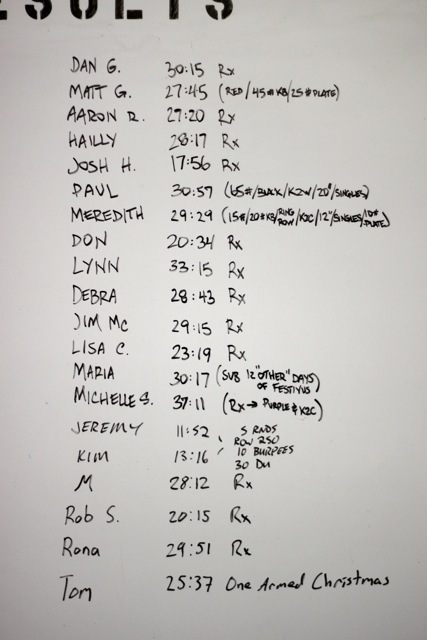 RESULTS
DAN G. 30:15 Rx
MATT G. 27:45 (RED/45#KB/25#PLATE)
AARON R. 27:20 Rx
HAILLY 28:17 Rx
JOSH H. 17:56 Rx
PAUL 30:57 (65#/BLACK/K2W/20"/SINGLES)
MEREDITH 29:29 (15#/20#KB/RING ROW/K2C/12"/SINGLES/10# PLATE)
DON 20:34 Rx
LYNN 33:15 Rx
DEBRA 28:43 Rx
JIM MC 29:15 Rx
LISA C. 23:19 Rx
MARIA 30:17 (SUB 12 "OTHER" DAYS
OF FESTIVUS)
MICHELLE S. 37:11 (Rx → PURPLE & K2C)
JEREMY 11:52 5 RNDS
ROW 250
KIM 13:16 10 BURPEES
30 DU
M 28:12 Rx
Rob S. 20:15 Rx
Rona 29:51 Rx
Tom 25:37 One Armed Christmas